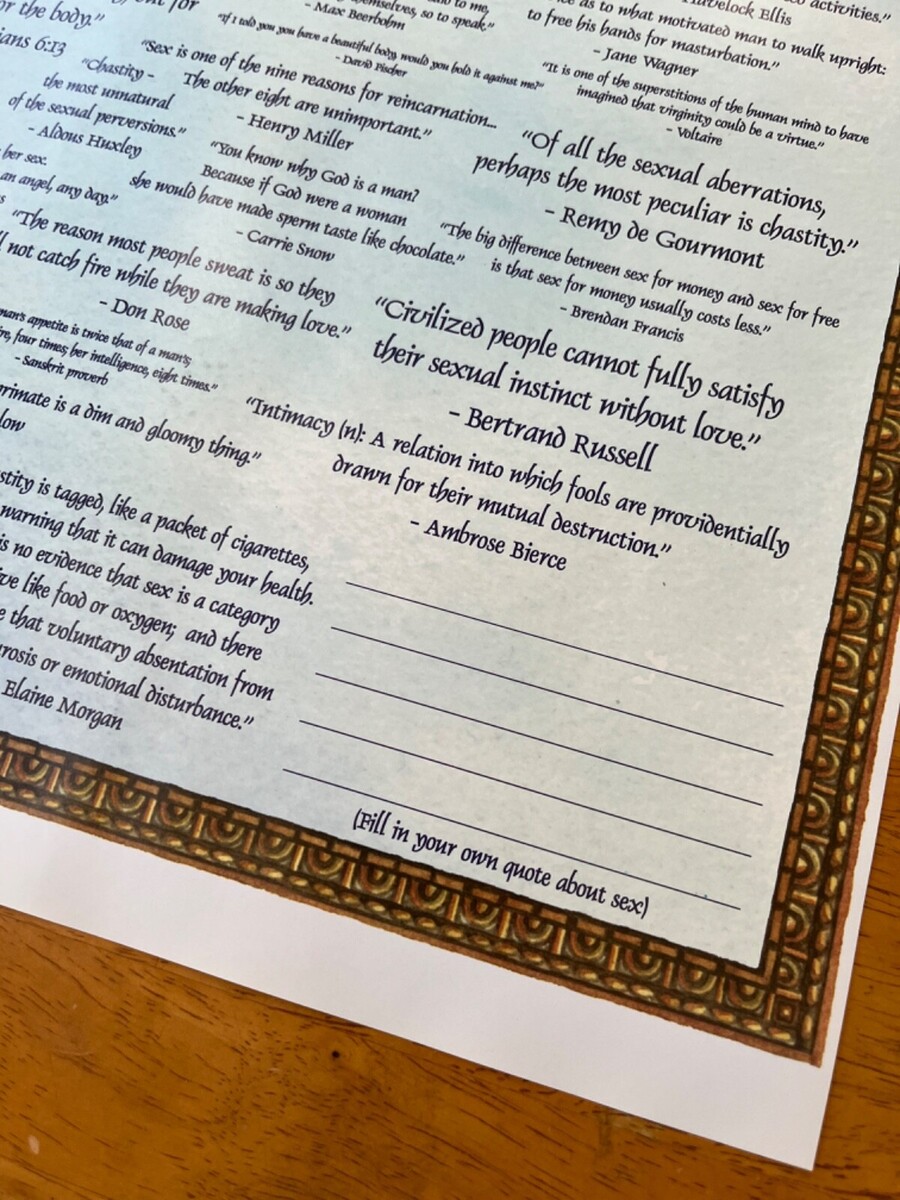 or the body."
ians 6:13
- Max Beerbohm
"If I told you you have a beautiful body, would you hold it against me?"
- David Fischer
Havelock Ellis
activities."
as to what motivated man to walk upright:
to free his hands for masturbation."
- Jane Wagner
"Chastity -
the most unnatural
of the sexual perversions."
- Aldous Huxley
"Sex is one of the nine reasons for reincarnation...
The other eight are unimportant."
- Henry Miller
"It is one of the superstitions of the human mind to have
imagined that virginity could be a virtue."
- Voltaire
her sex.
an angel, any day."
"You know why God is a man?
Because if God were a woman
she would have made sperm taste like chocolate."
- Carrie Snow
"Of all the sexual aberrations,
perhaps the most peculiar is chastity."
- Remy de Gourmont
"The reason most people sweat is so they
not catch fire while they are making love."
- Don Rose
"The big difference between sex for money and sex for free
is that sex for money usually costs less."
- Brendan Francis
man's appetite is twice that of a man's;
four times; her intelligence, eight times."
- Sanskrit proverb
"Civilized people cannot fully satisfy
their sexual instinct without love."
- Bertrand Russell
rimate is a dim and gloomy thing."
low
"Intimacy (n): A relation into which fools are providentially
drawn for their mutual destruction."
- Ambrose Bierce
stity is tagged, like a packet of cigarettes,
warning that it can damage your health.
is no evidence that sex is a category
ve like food or oxygen; and there
e that voluntary absentation from
rosis or emotional disturbance."
Elaine Morgan
(Fill in your own quote about sex)